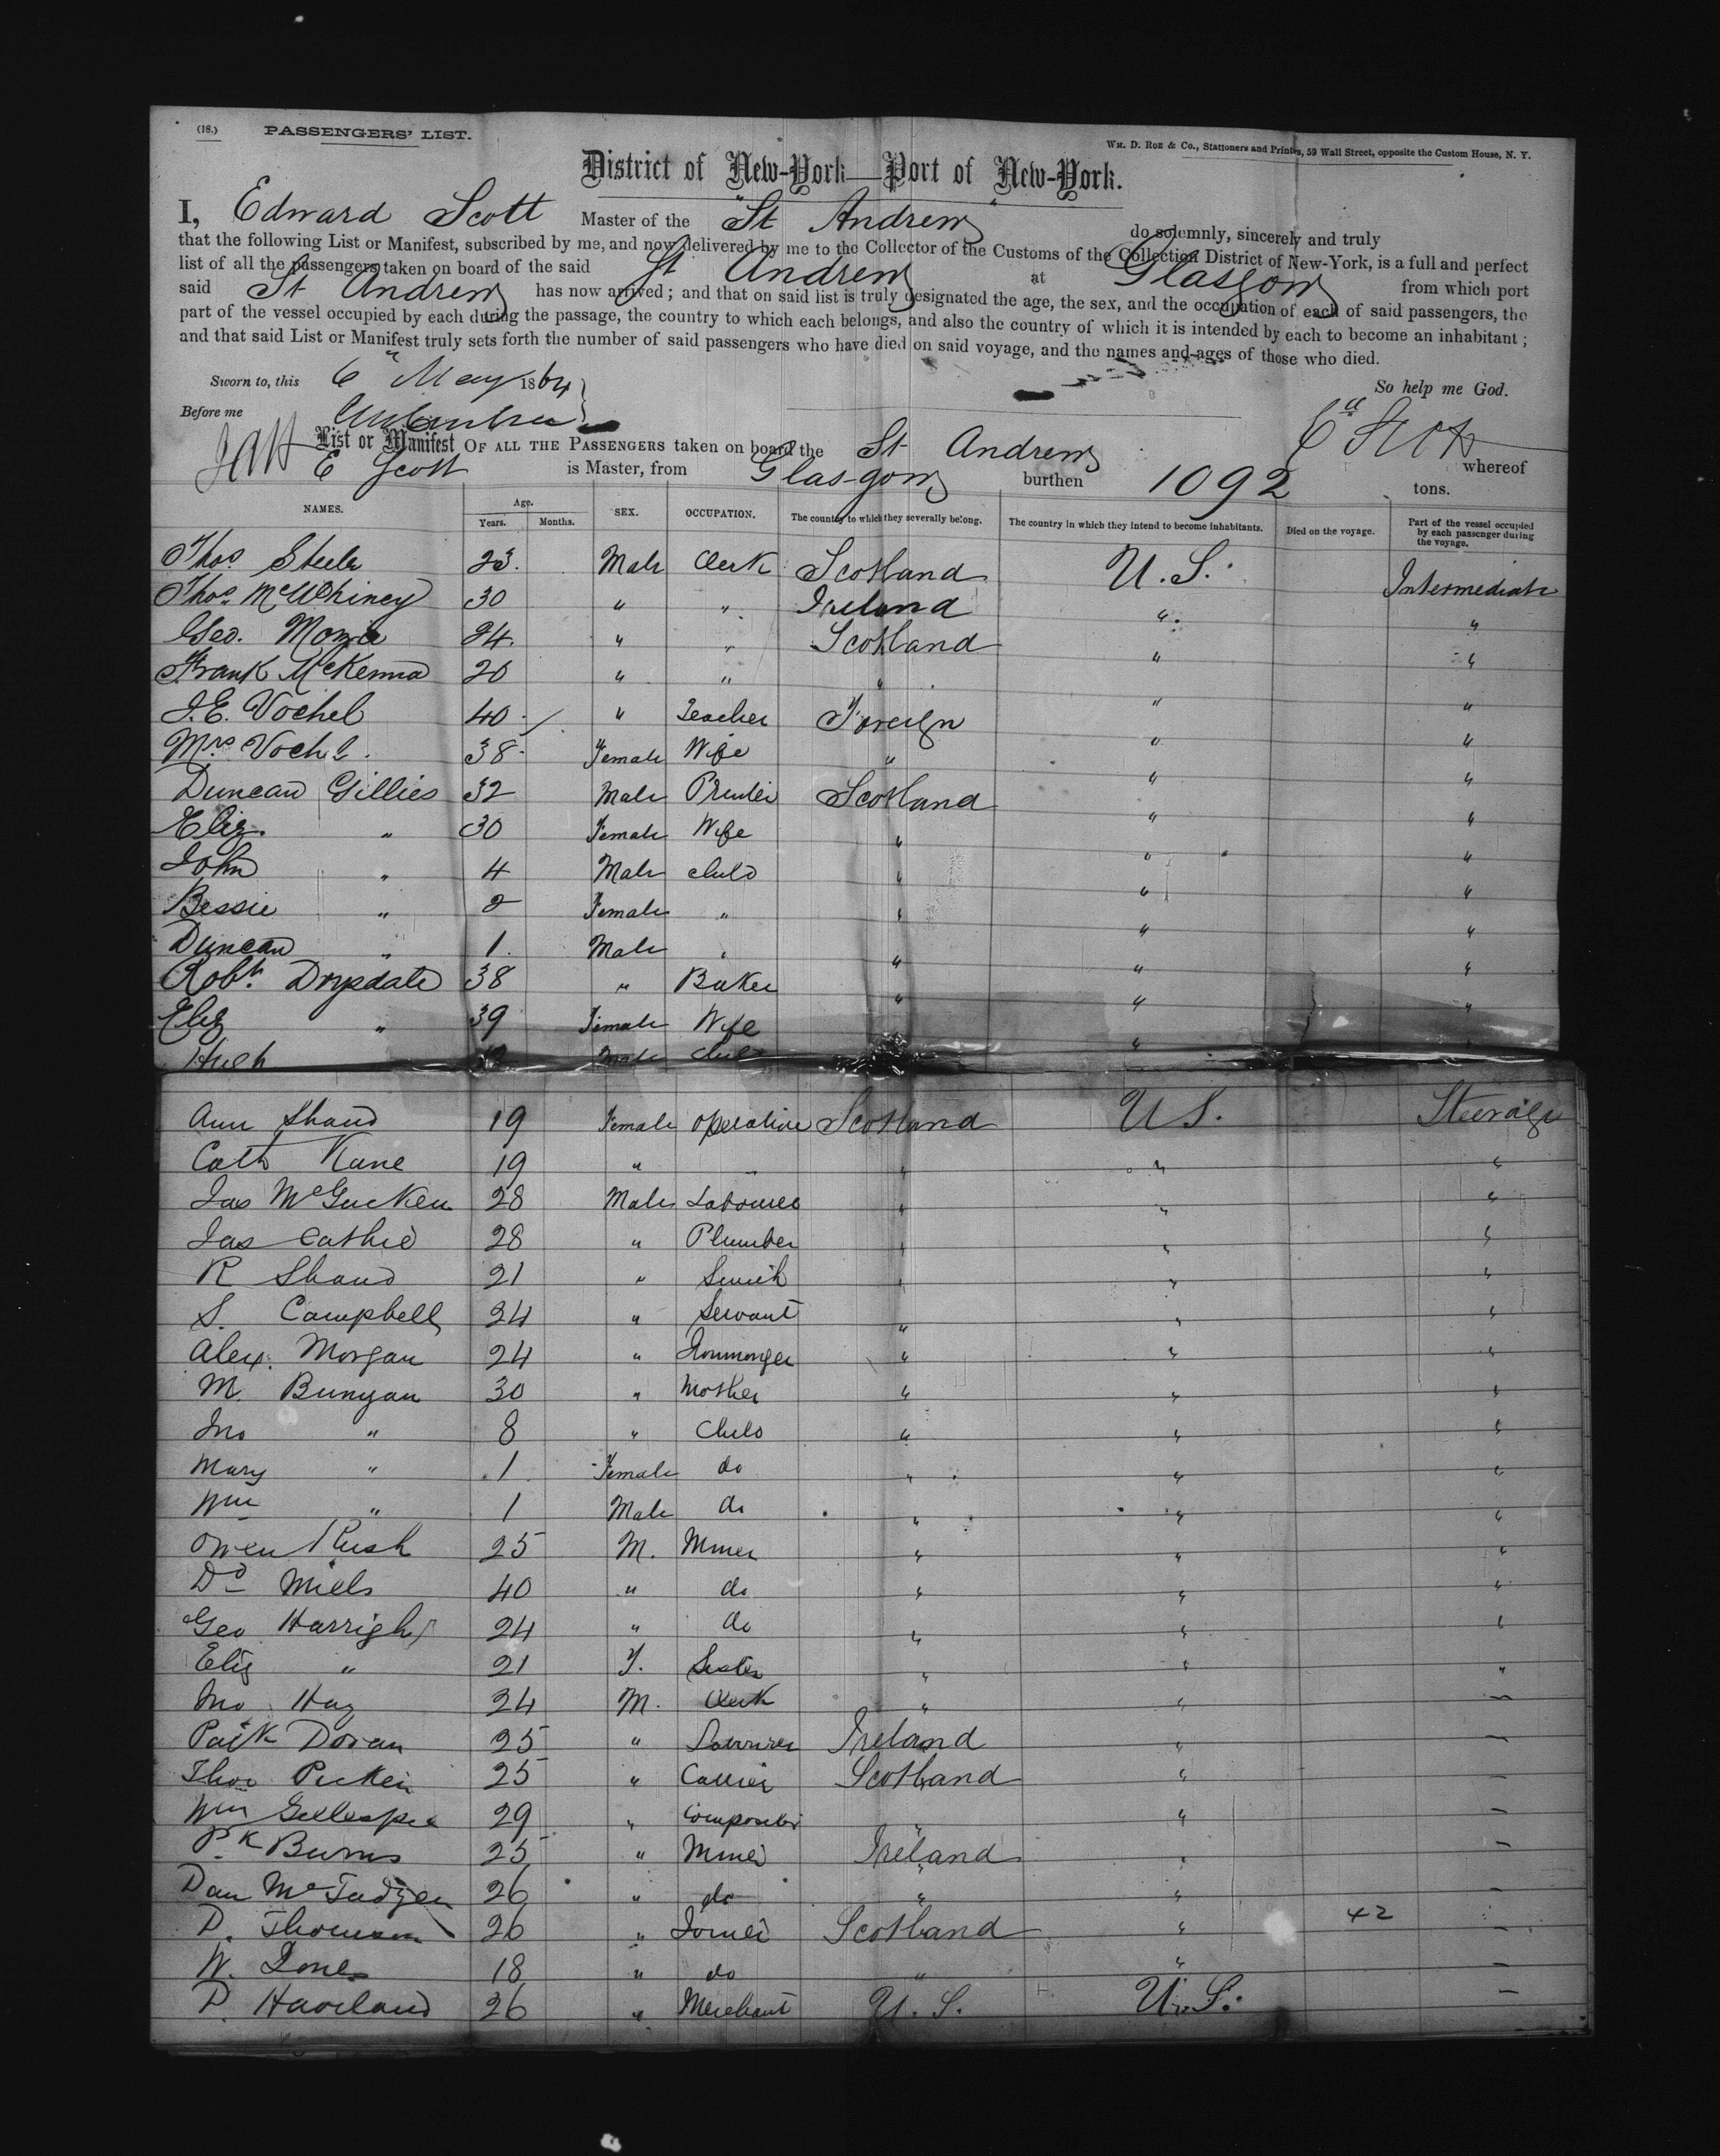 (18.) PASSENGERS' LIST.
Wm. D. Roe & Co., Stationers and Printers, 59 Wall Street, opposite the Custom House, N. Y.
District of New-York—Port of New-York.
I, Edward Scott Master of the "St Andrew" do solemnly, sincerely and truly
that the following List or Manifest, subscribed by me, and now delivered by me to the Collector of the Customs of the Collection District of New-York, is a full and perfect
list of all the passengers taken on board of the said St Andrew at Glasgow from which port
said St Andrew has now arrived; and that on said list is truly designated the age, the sex, and the occupation of each of said passengers, the
part of the vessel occupied by each during the passage, the country to which each belongs, and also the country of which it is intended by each to become an inhabitant;
and that said List or Manifest truly sets forth the number of said passengers who have died on said voyage, and the names and ages of those who died.
Sworn to, this 6" May 1864 So help me God.
Before me
List or Manifest OF ALL THE PASSENGERS taken on board the St Andrew whereof
E Scott is Master, from Glasgow burthen 1092 tons.
NAMES. Age. Years. Months. SEX. OCCUPATION. The country to which they severally belong. The country in which they intend to become inhabitants. Died on the voyage. Part of the vessel occupied by each passenger during the voyage.
Thos. Steele 23. Male Clerk Scotland U.S. Intermediate
Thos. McWhiney 30 " " Ireland " "
Geo. 24. " " Scotland " "
Frank McKenna 20 " " " " "
J.E. Vochel 40 " Teacher Foreign " "
Mrs Vochel. 38 Female Wife " " "
Duncan Gillies 32 Male Printer Scotland " "
Eliz. " 30 Female Wife " " "
John " 4 Male child " " "
Bessie " 2 Female " " " "
Duncan " 1. Male " " " "
Robt. Drysdale 38 " Baker " " "
Eliz " 39 Female Wife " "
Hugh Male child
Ann Shand 19 Female operative Scotland U S. Steerage
Cath Kane 19 " " " " "
Jas McGucken 28 Male Labourer " " "
Jas Cathie 28 " Plumber " " "
R Shand 21 " Smith " " "
S. Campbell 24 " Servant " " "
Alex. Morgan 24 " Ironmonger " " "
M. Bunyan 30 " Mother " " "
Jno " 8 " Child " " "
Mary " 1 Female do " " "
Wm " 1 Male do " " "
Owen Rush 25 M. Miner " " "
Dd Mills 40 " do " " "
Geo 24 " do " " "
Eliz " 21 F. Sister " " "
Jno Hay 24 M. Clerk " " —
Patk Doran 25 " Labourer Ireland " —
Thos 25 " Scotland " —
Wm Gillespie 29 " Compositor " " —
Pk Burns 25 " Miner Ireland " —
Dan 26 " do " " —
D. Thomson 26 " Joiner Scotland " 42 —
W. 18 " do " " —
D. Haviland 26 " Merchant U. S. U. S. —